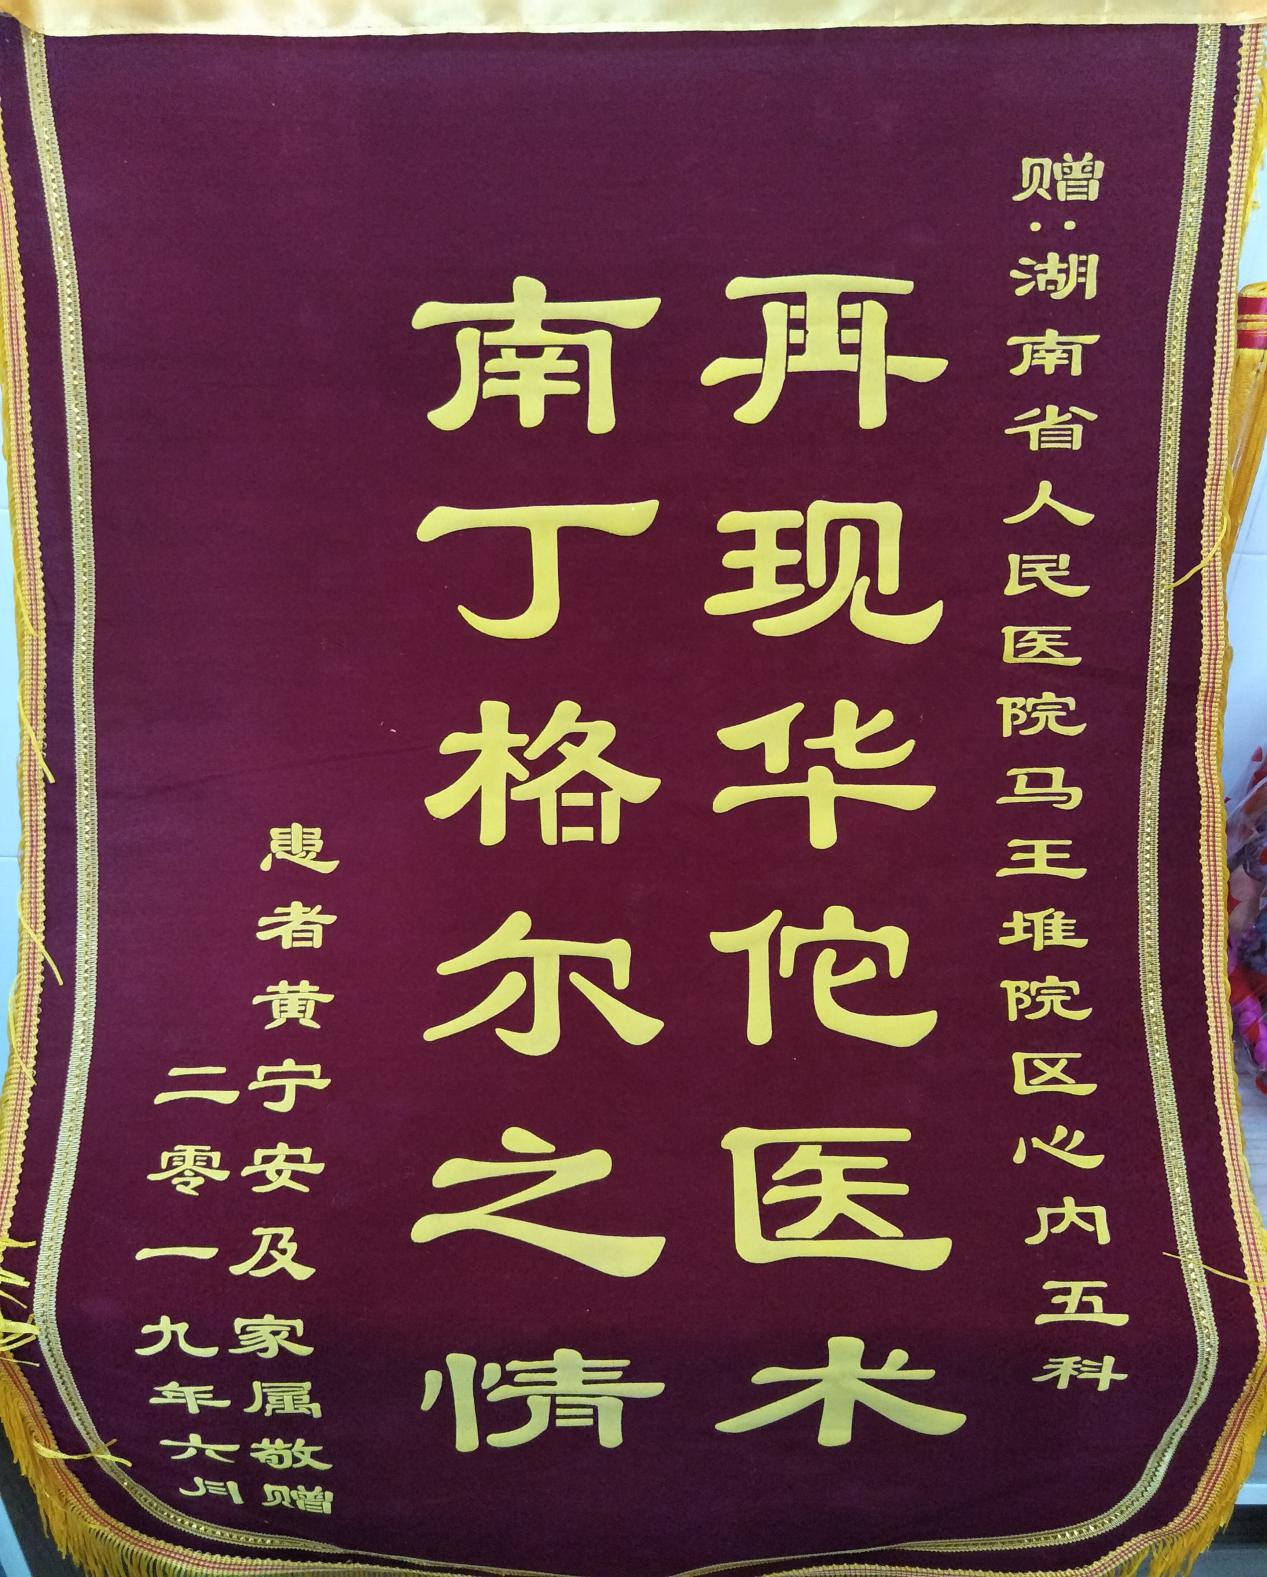 赠:湖南省人民医院马王堆院区心内五科
再现华佗医术
南丁格尔之情
患者黄宁安及家属敬赠
二零一九年六月